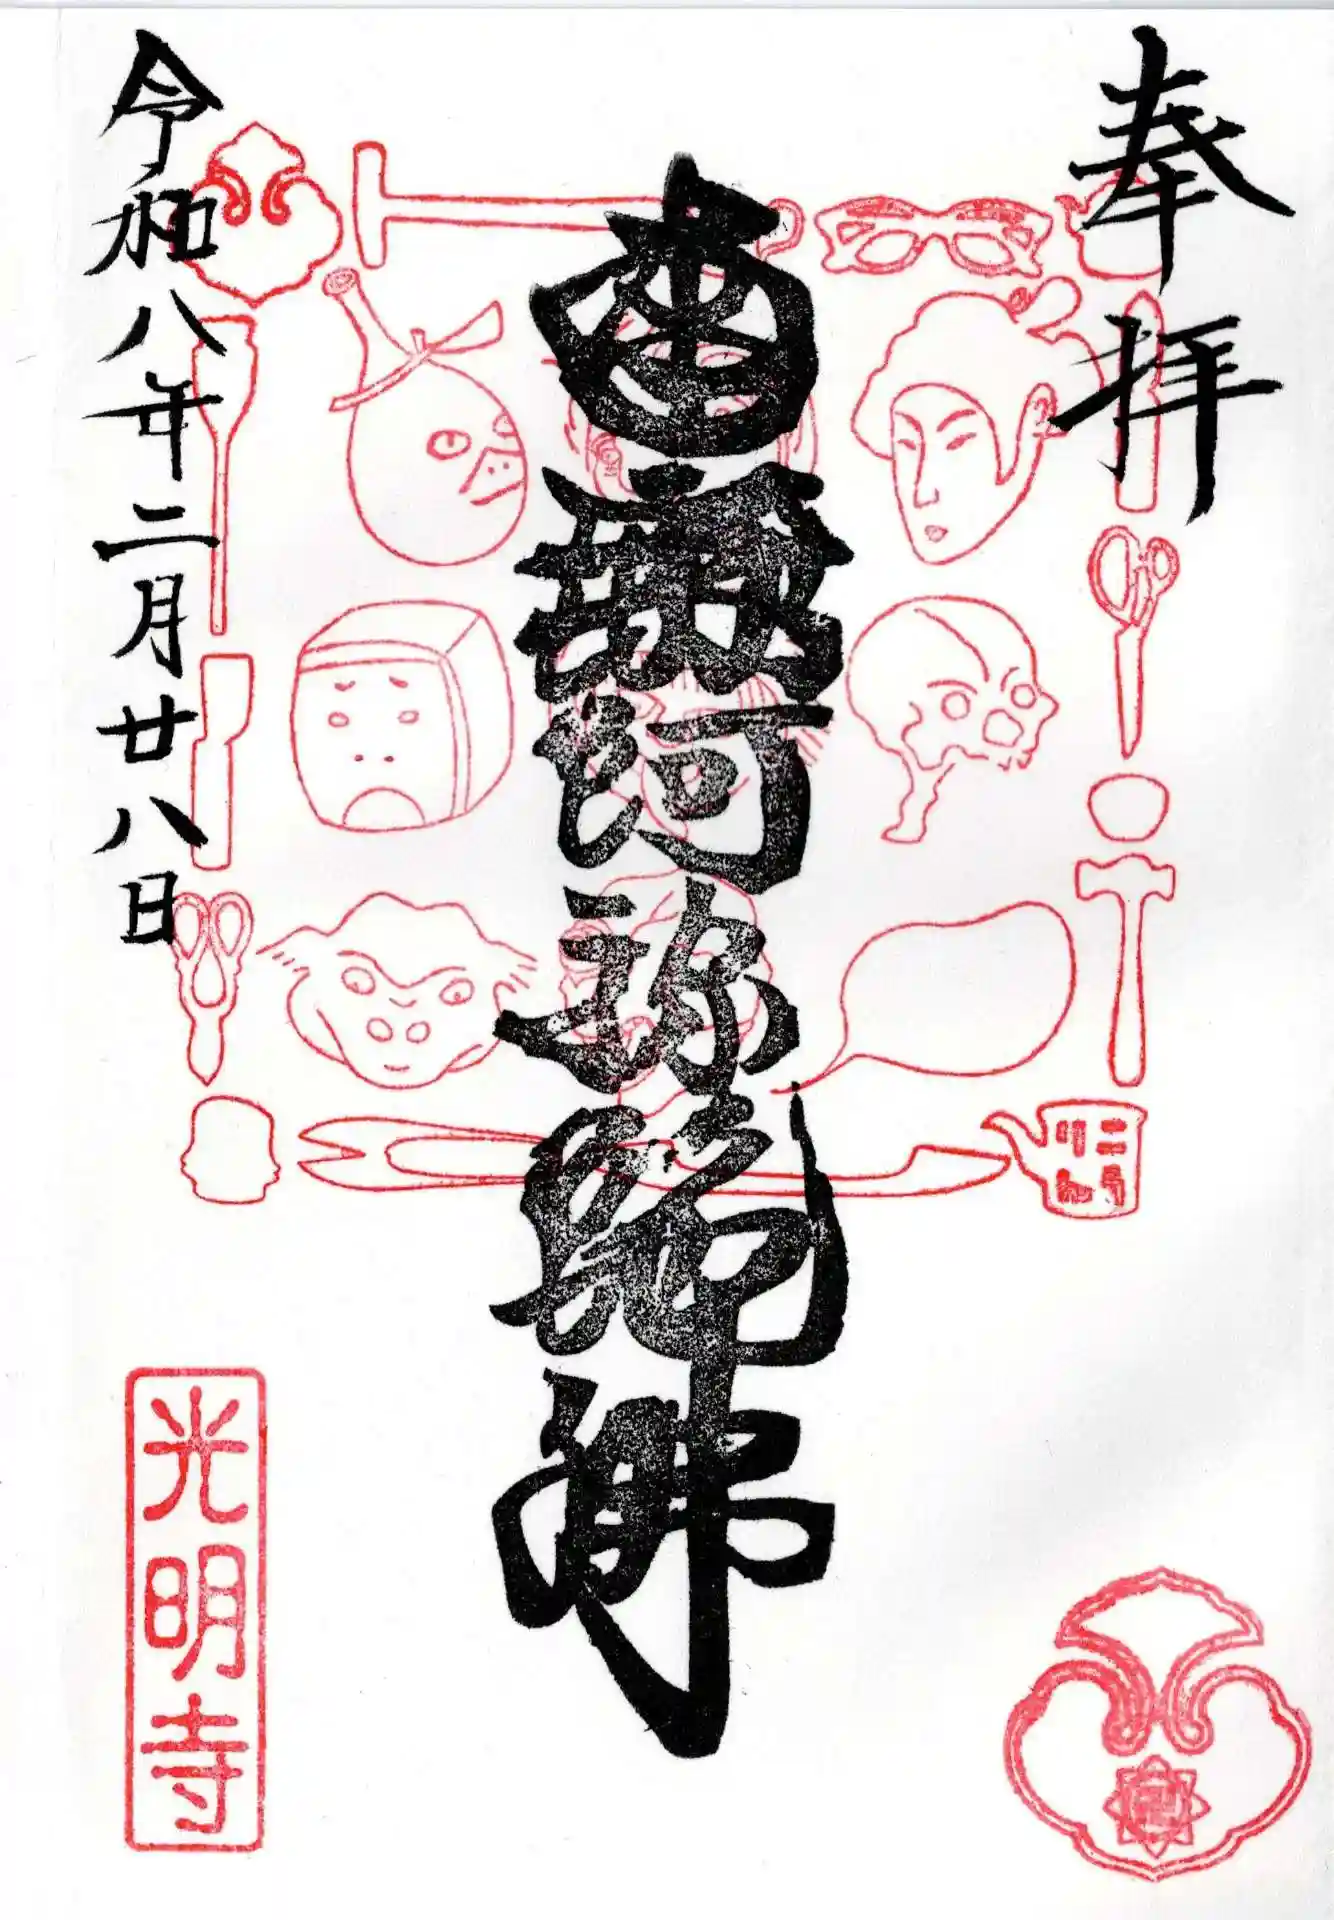 奉拝
南無阿弥陀佛
令和八年二月廿八日
光明寺